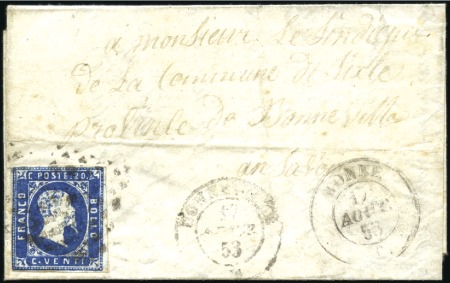 a monsieur Le Sindique
De La Commune de
Province de Bonneville
en Savoie
C. POSTE. 20.
FRANCO
BOLLO
C. VENTI
BONNEVILLE
17
53
BONNE
17
AOUT
53